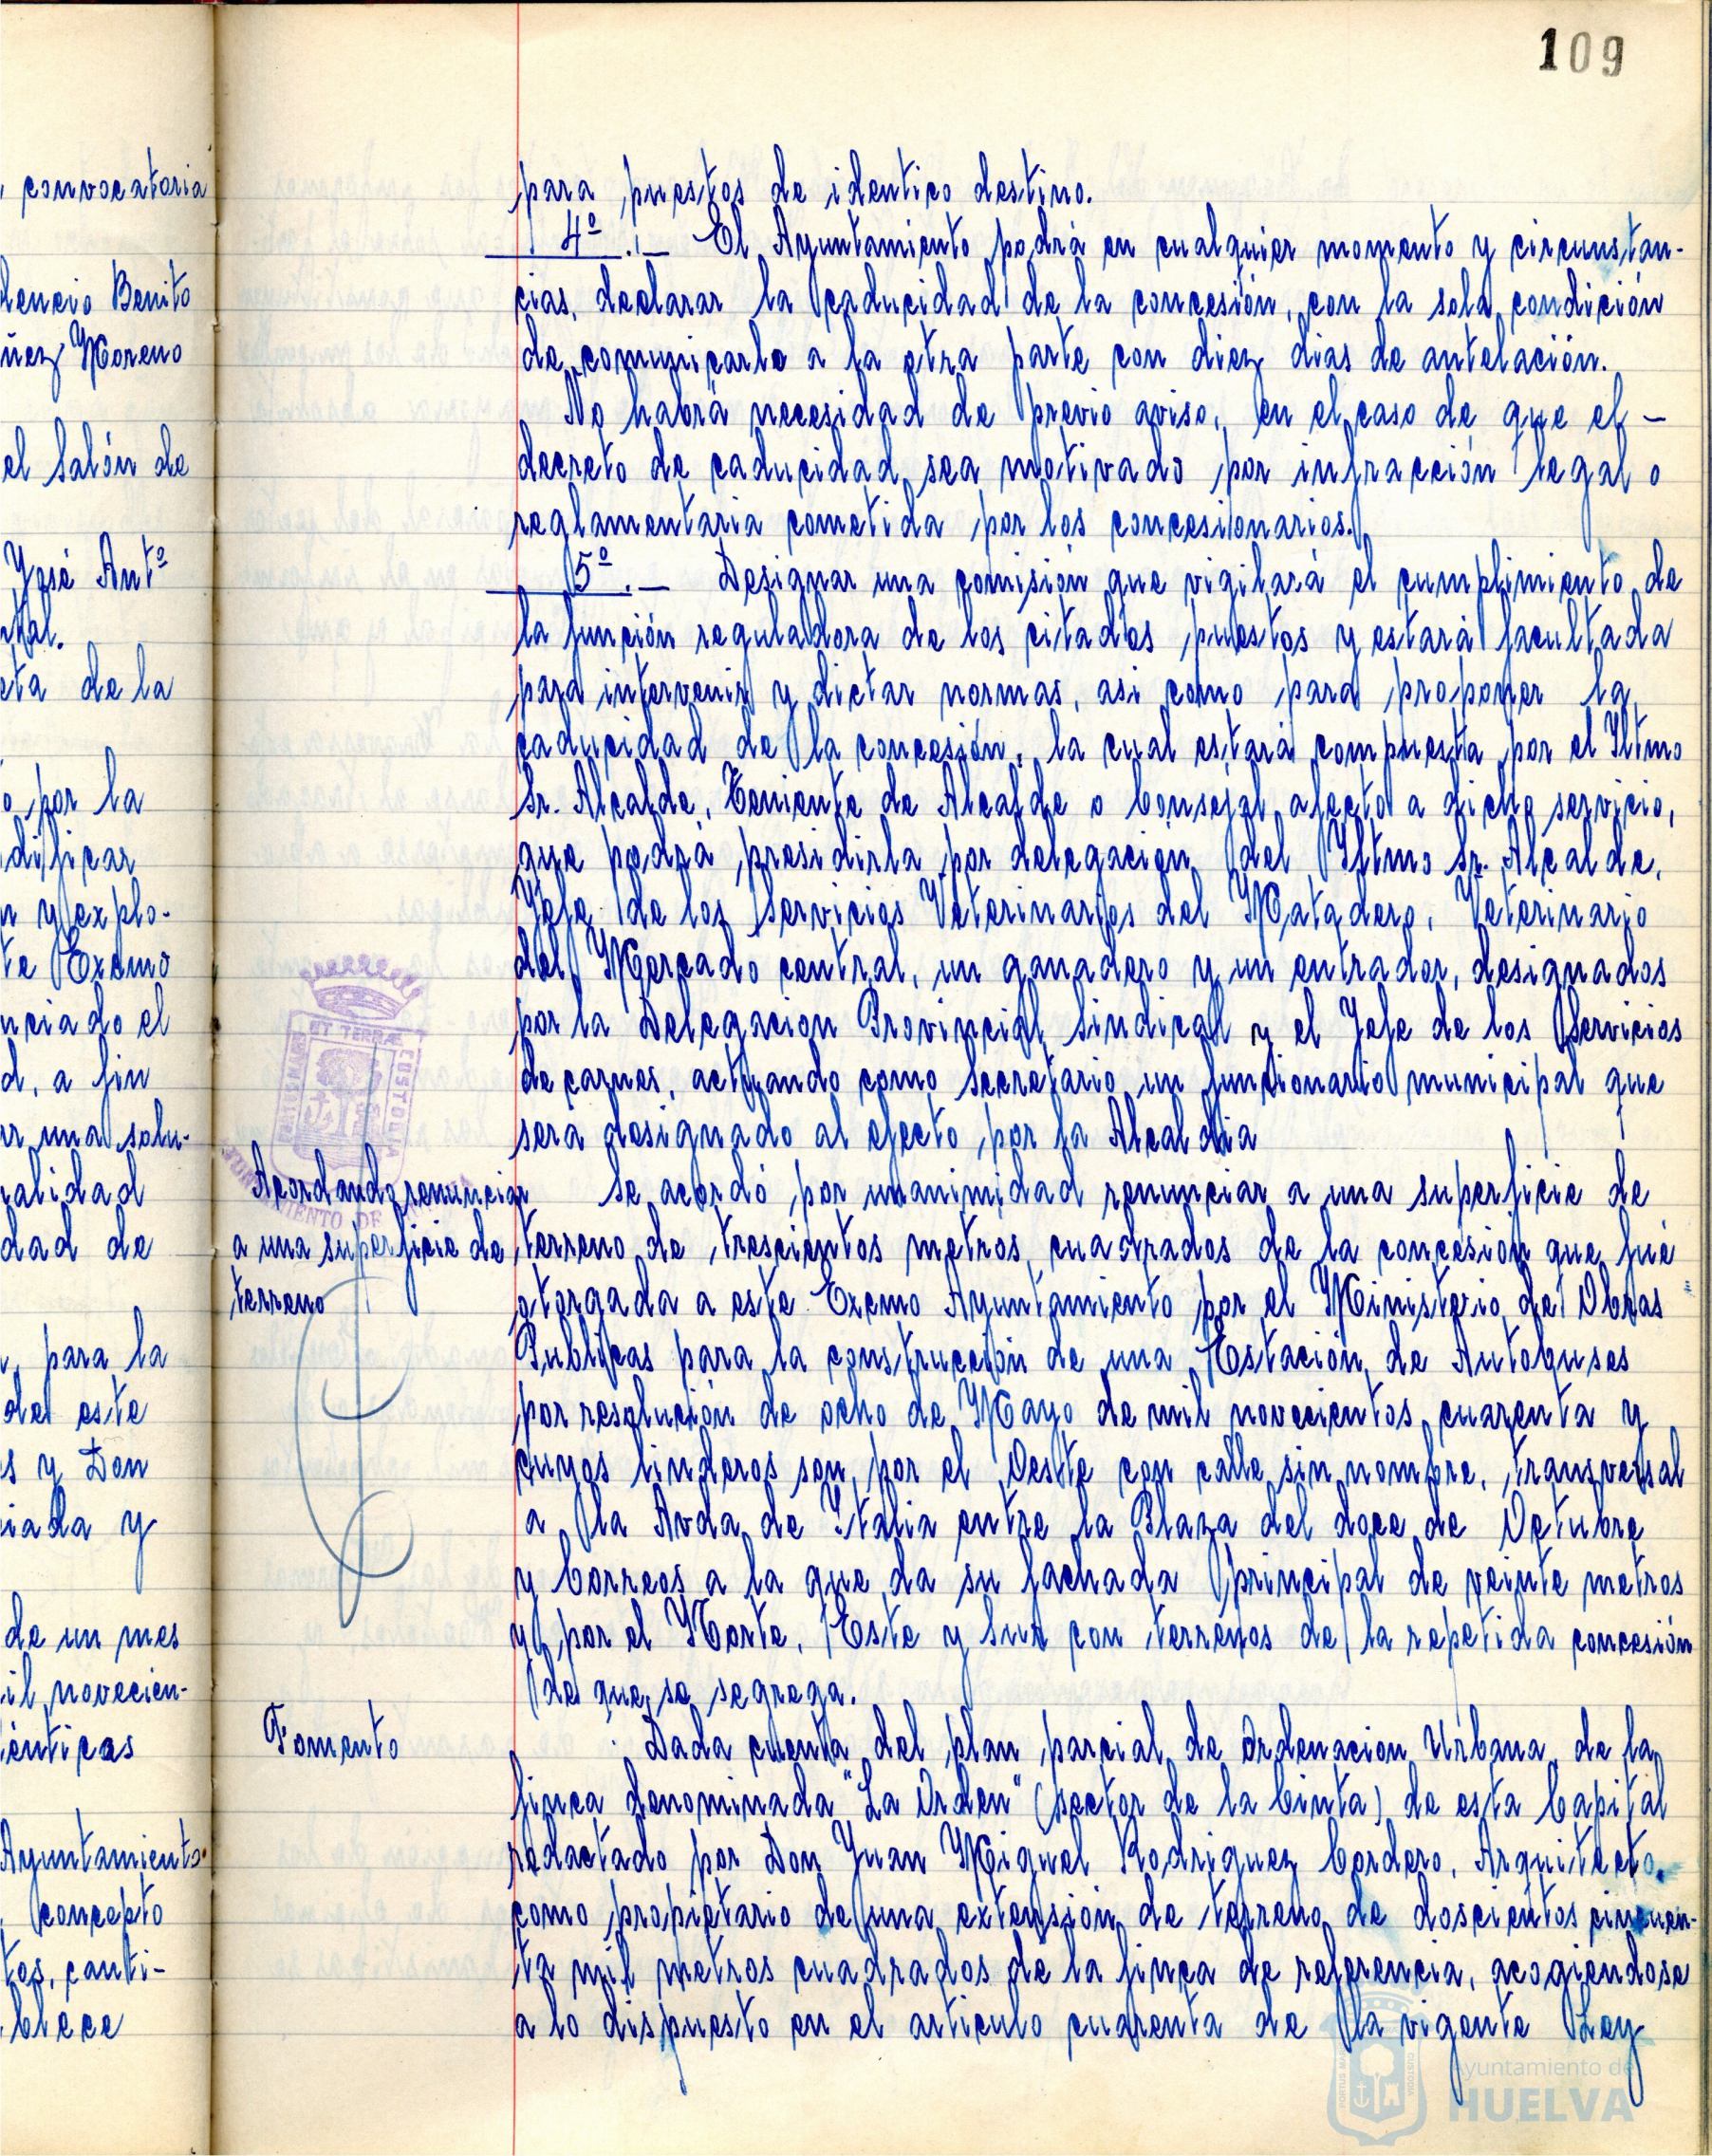 109
, convocatoria
dencio Benito
ñez Moreno
el Salón de
José Antº
tal.
eta de la
o por la
dificar
n y explo-
te Excmo
nciado el
d, a fin
ar una solu-
ralidad
dad de
, para la
del este
s y Don
iada y
de un mes
il novecien-
énticas
Ayuntamiento.
, concepto
tos, canti-
blece
para puestos de identico destino.
4º.- El Ayuntamiento podrá en cualquier momento y circunstan-
cias, declarar la caducidad de la concesión, con la sola condición
de comunicarlo a la otra parte con diez dias de antelación.
No habrá necesidad de previo aviso, en el caso de que el -
decreto de caducidad sea motivado por infracción legal o
reglamentaria cometida por los concesionarios.
5º.- Designar una comisión que vigilará el cumplimiento de
la función reguladora de los citados puestos y estará facultada
para intervenir y dictar normas, asi como para proponer la
caducidad de la concesión, la cual estará compuesta por el Iltmo
Sr. Alcalde, Teniente de Alcalde o Consejal afecto a dicho servicio,
que podrá presidirla por delegación del Iltmo Sr. Alcalde,
Jefe de los Servicios Veterinarios del Matadero, Veterinario
del Mercado central, un ganadero y un entrador, designados
por la Delegacion Provincial Sindical y el Jefe de los Servicios
de carnes, actuando como Secretario un funcionario municipal que
será designado al efecto por la Alcaldia
Acordando renunciar
a una superficie de
terreno
Se acordó por unanimidad renunciar a una superficie de
terreno de trescientos metros cuadrados de la concesión que fué
otorgada a este Excmo Ayuntamiento por el Ministerio de Obras
Publicas para la construcción de una Estación de Autobuses
por resolución de ocho de Mayo de mil novecientos cuarenta y
cuyos linderos son, por el Oeste con calle sin nombre, transversal
a la Avda de Italia entre la Plaza del doce de Octubre
y Correos a la que da su fachada principal de veinte metros
y por el Norte, Este y Sur con terrenos de la repetida concesión
de que se segrega.
Fomento
Dada cuenta del plan parcial de Ordenacion Urbana de la
finca denominada "La Orden" (sector de la Cinta) de esta Capital
redactado por Don Juan Miguel Rodriguez Cordero, Arquitecto,
como propietario de una extensión de terreno de doscientos cincuen-
ta mil metros cuadrados de la finca de referencia, acogiendose
a lo dispuesto en el articulo cuarenta de la vigente Ley
PORTUS MARIS ET TERRAE CUSTODIA
Ayuntamiento de
HUELVA